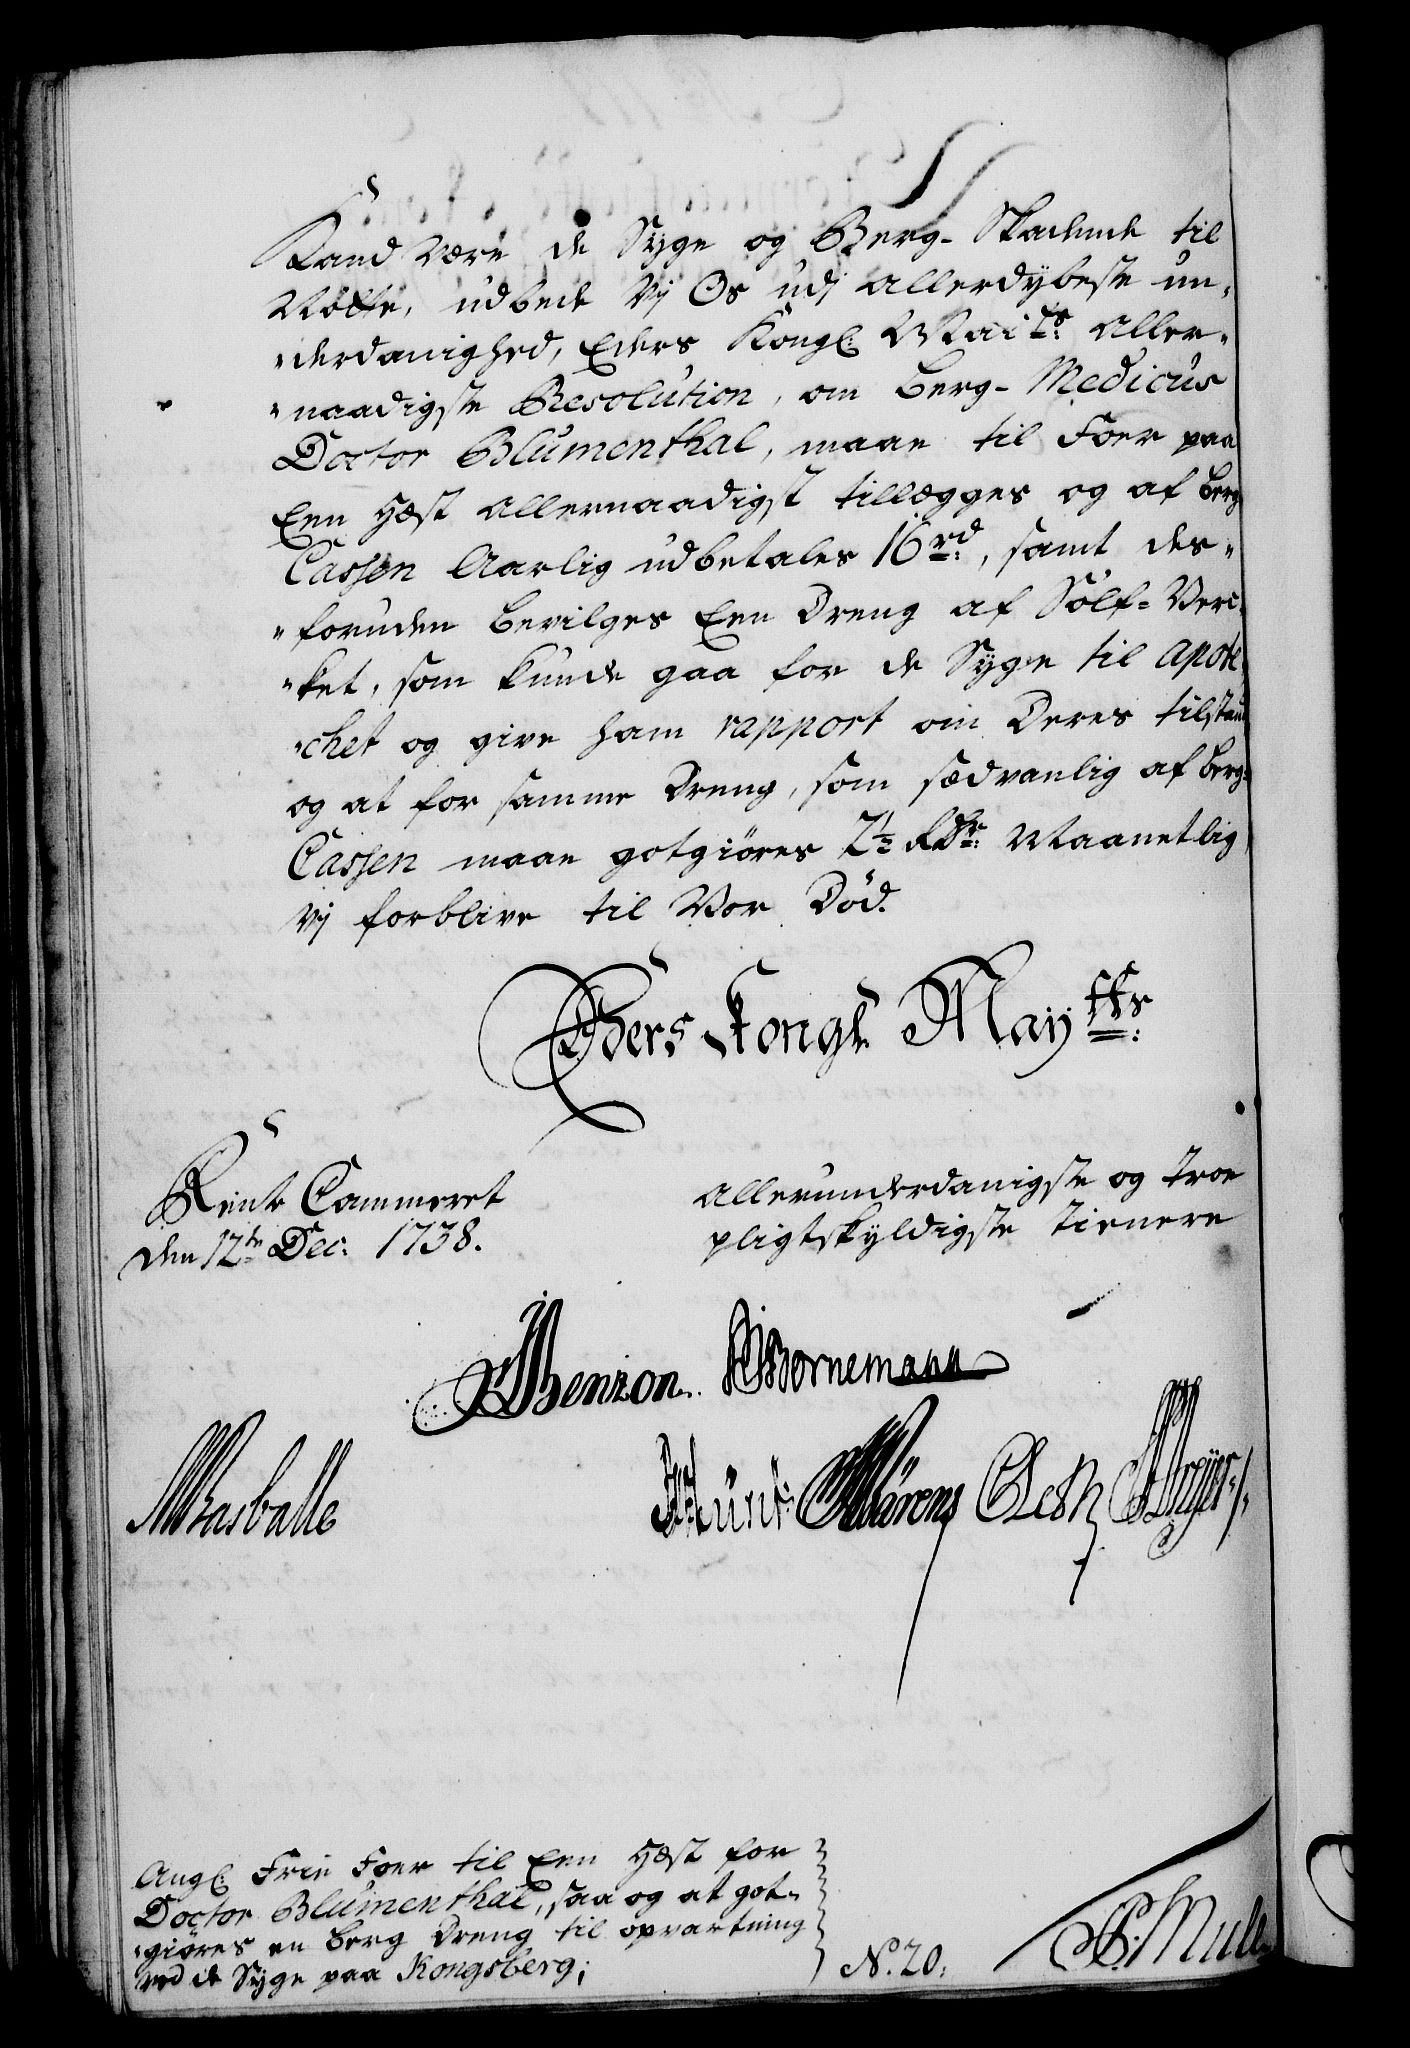 Kand være de Syge og Berg- Skadende til
Nötte, udbede Vj Os udj allerdybeste un„
„derdanighed, Eders Kongl: Mai ts: Aller„
„naadigste Resolution, om Berg- Medicus
Doctor Blumenthal, maae til Foer paa
Een Hæst Allernaadigst tillægges og af Berg
Cassen Aarlig udbetales 16 rd:, samt des„
„foruden bevilges Een Dreng af Sölf= Verc„
„ket, som kunde gaa for de Syge til Apote
„chet og give ham rapport om Deres tilstand
og at for samme Dreng, som sædvanlig af berg=
Cassen maae gotgiöres 2½ Rdr: Maanetlig
Vj forblive til Vor Död.
Eders Kongl May tts:
Rente Cammeret
den 12te Dec: 1738.
allerunderdanigste og Troe
pligtskyldigste tienere
Benzon. Bornemann
Basballe
Kurtz Wörens Olesen Dreyer
Angl: Frie Foer til Een Hæst for
Doctor Blumenthal, saa og at got„
„giöres en Berg Dreng til opvartning
ved de Syge paa Kongsberg;
N. 20.
Mull